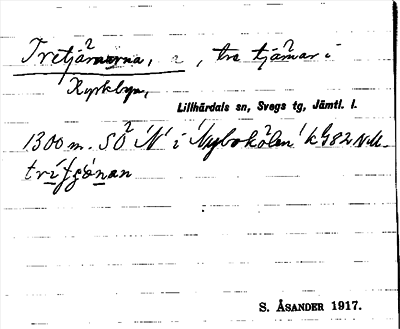 Tretjärnarna, 2, tre tjärnar i
Kyrkbyn,
Lillhärdals sn, Svegs tg, Jämtl. l.
1300 m. SÖ 'N' i 'Nybokölen' k 982 NM.
S. ÅSANDER 1917.